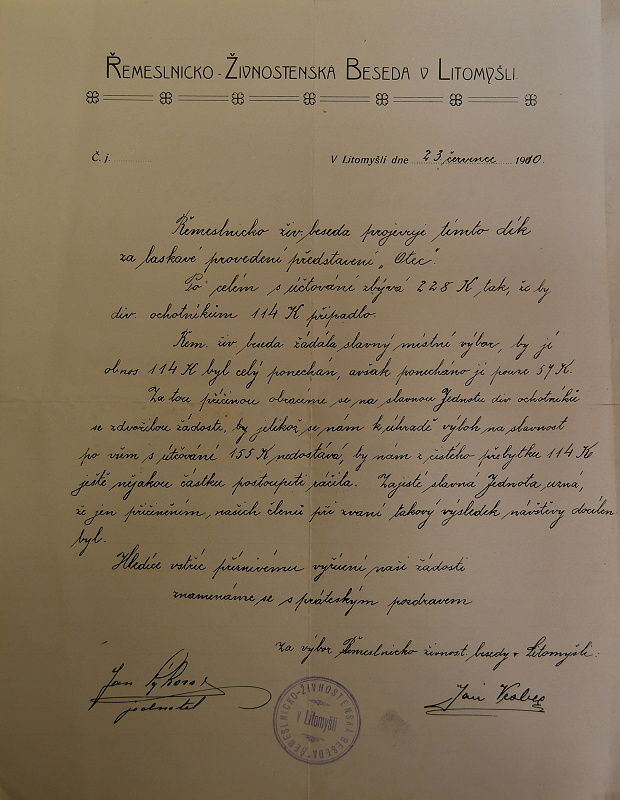 Řemeslnicko-Živnostenská Beseda v Litomyšli.
Č. j. V Litomyšli dne 23 července 1910.
Řemeslnicko živ. beseda projevuje tímto dík
za laskavé provedení představení „Otec“.
Po celém s účtování zbývá 228 K tak, že by
div. ochotníkům 114 K připadlo.
Řem. živ. beseda žádala slavný místní výbor, by jí
obnos 114 K byl celý ponechán, avšak ponecháno jí pouze 57 K.
Za tou příčinou obracíme se na slavnou Jednotu div. ochotníků
se zdvořilou žádostí, by jelikož se nám k úhradě výloh na slavnost
po všem s účtování 155 K nedostává, by nám z čistého přebytku 114 K
ještě nějakou částku postoupiti ráčila. Zajisté slavná Jednota uzná,
že jen přičiněním našich členů při zvaní takový výsledek návštěvy docílen
byl.
Hledíce vstříc příznivému vyřízení naší žádosti
znamenáme se s přátelským pozdravem
Za výbor Řemeslnicko živnost. besedy v Litomyšli:
Jan
jednatel
Jan
ŘEMESLNICKO-ŽIVNOSTENSKÁ BESEDA
v Litomyšli